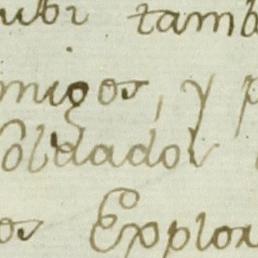 ubi tamb
migos, y p
Soldados
os Explor